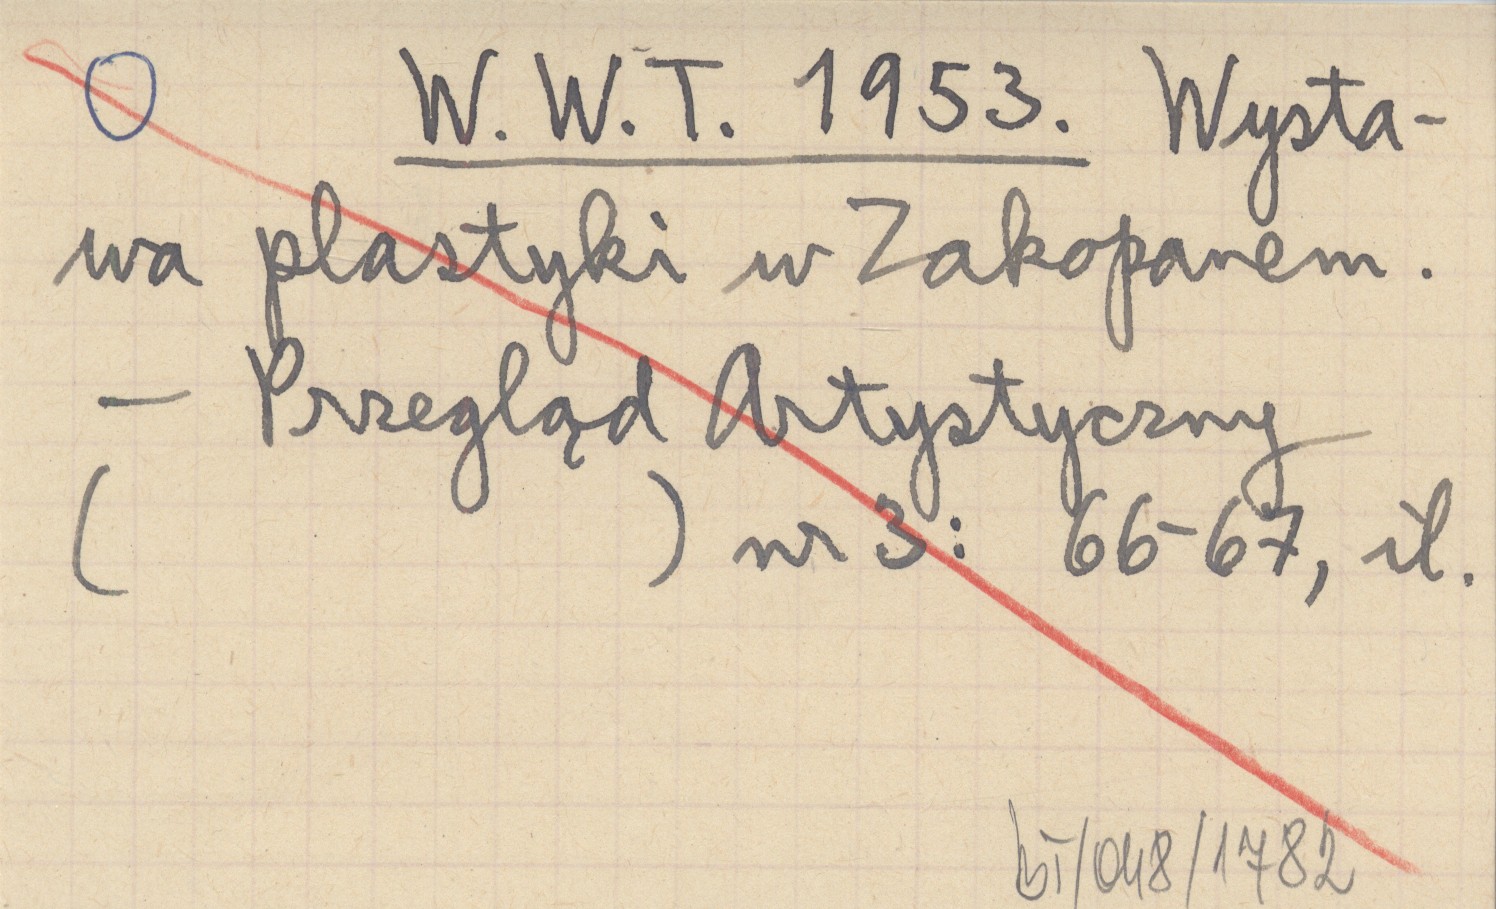 O W. W. T. 1953. Wysta-
wa plastyki w Zakopanem.
- Przegląd Artystyczny
( ) nr 3: 66-67, il.
bī/048/1782